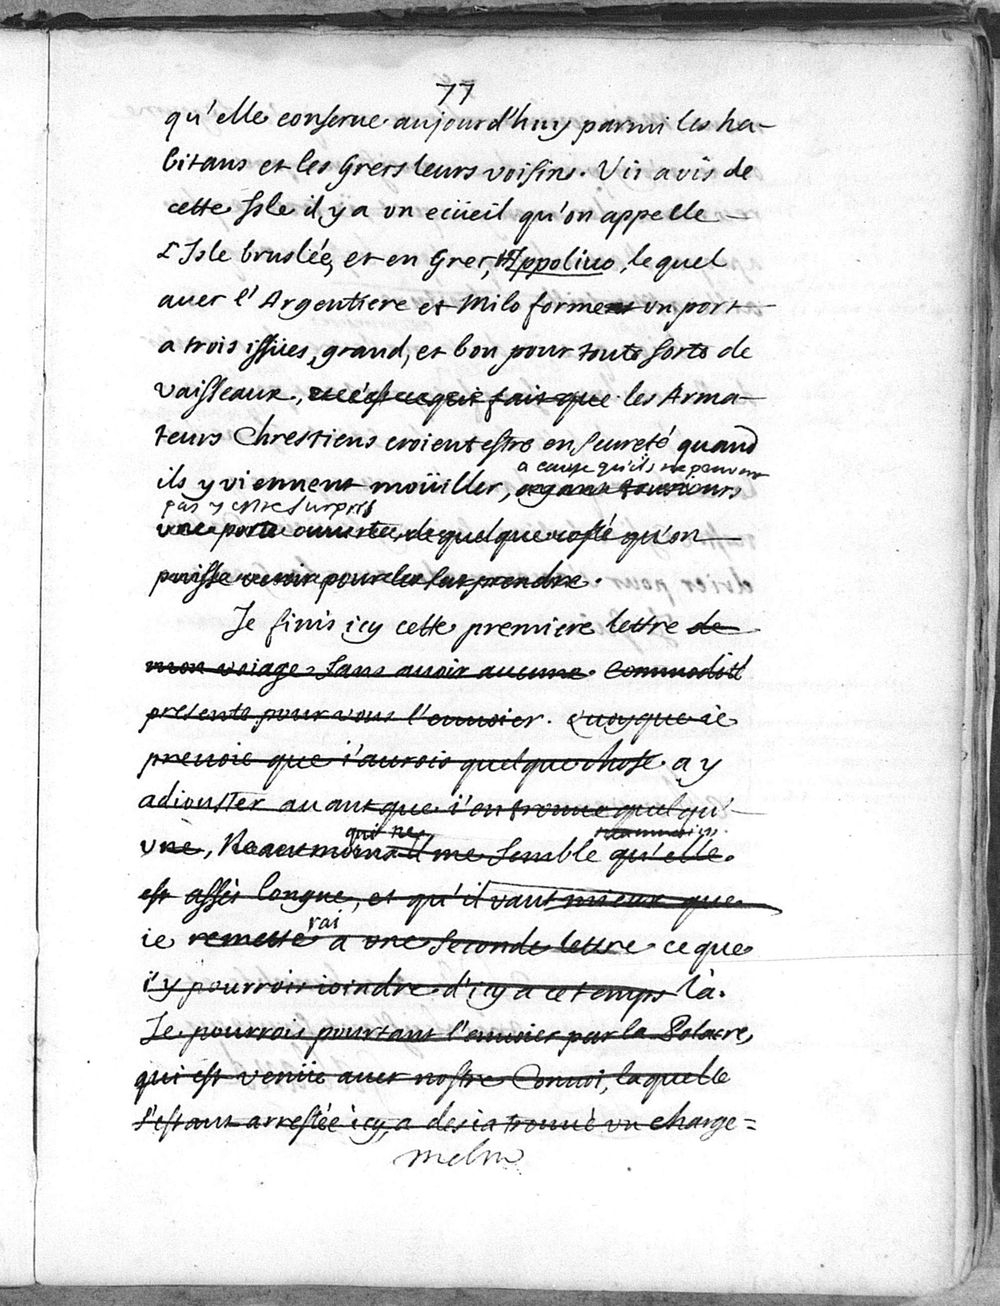 77
qu'elle conserue aujourd'huy parmi les ha-
bitans et les Grecs leurs voisins. Vis a vis de
cette Isle il y a vn ecüeil qu'on appelle
L'Isle bruslée, et en Grec, Hppolivo, lequel
auec l'Argentiere et Milo forment vn port
a trois issües, grand, et bon pour toute sorte de
vaisseaux, et c'est ce qui fait que les Arma-
teurs Chrestiens croient estre en seureté quand
a cause qu'ils ne peuvent
ils y viennent moüiller, ayant tousiours
pas y estre surpris
vne porte ouuerte, de quelque costé qu'on
puisse venir pour les surprendre.
Je finis icy cette premiere lettre de
mon voiage sans auoir aucune commodité
presente pour vous l'enuoier. Quoyque ie
prevoie que i'aurois quelque chose a y
adiouster auant que i'en trouue quelqu'
qui ne neanmoins
vne, Neanmoins il me semble qu'elle
est assés longue, et qu'il vaut mieux que
rai
ie remette a vne seconde lettre ce que
i'y pourrois ioindre d'icy a ce temps là.
Je pourrois pourtant l'enuoier par la Polacre,
qui est venüe auec nostre Conuoi, laquelle
s'estant arrestée icy, a desia trouué vn charge=